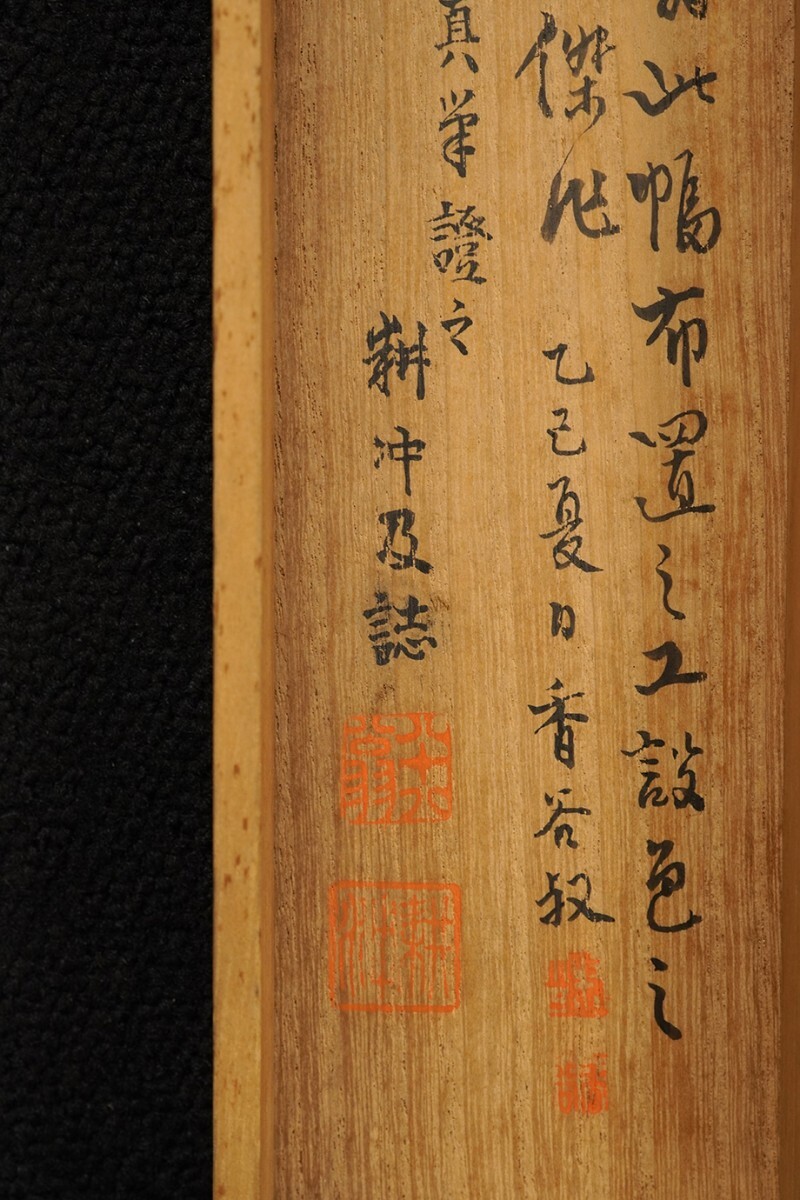 此幅布置之工設色之
傑作 乙巳夏日 香谷叔
真筆證之
耕冲及誌